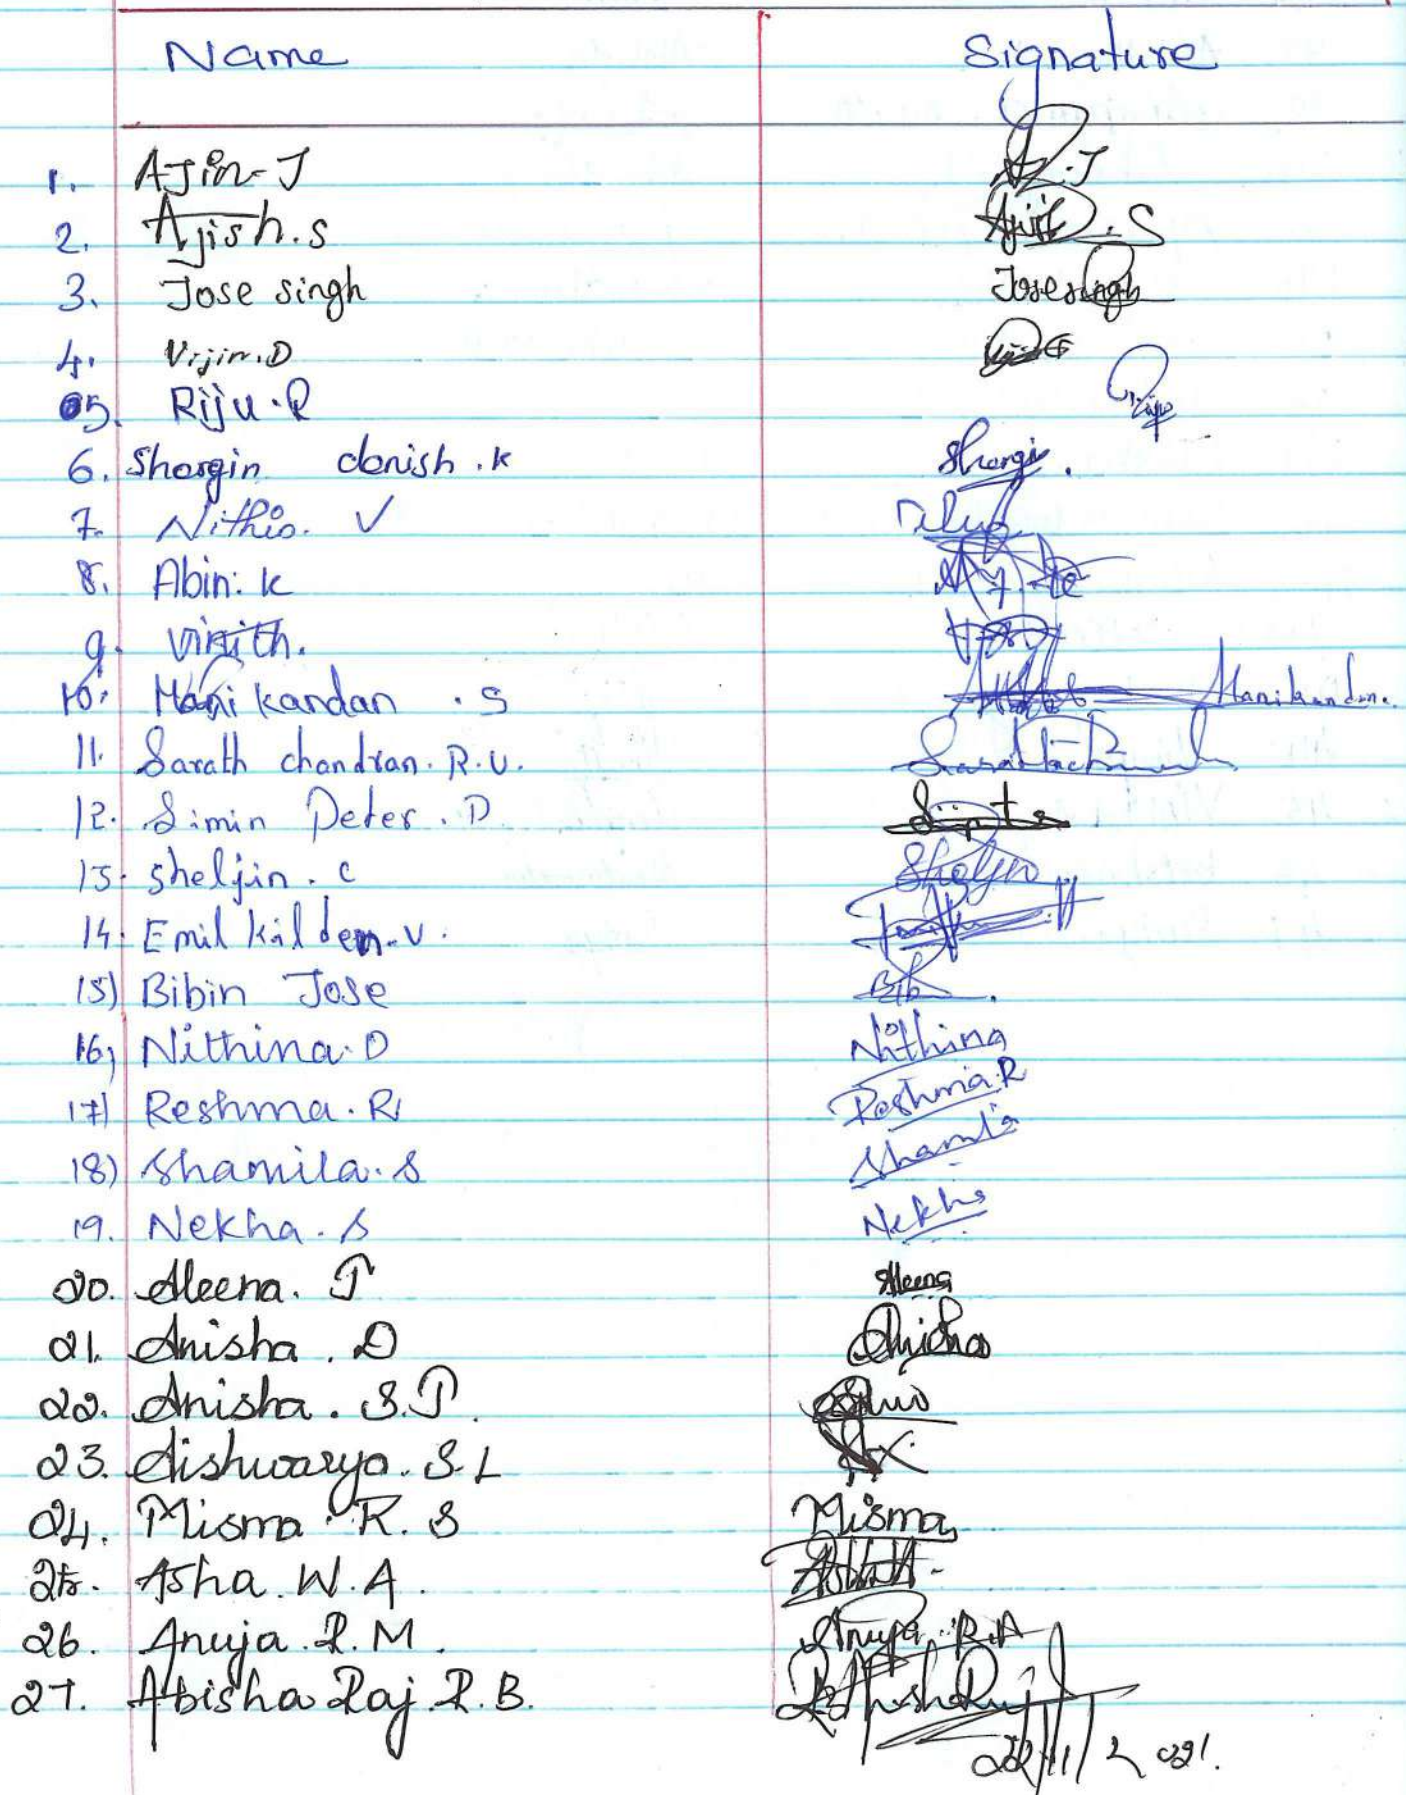 Name Signature
1. Ajin-J A.J
2. Ajish.S Ajish.S
3. Jose singh Jose singh
4. Vijin.D
05. Riju.R Riju
6. Shargin danish.k Shargi.
7. Nithis. V
8. Abin. K
9. Vinith.
10. Manikandan .S Manikandan.
11. Sarath chandran. R.U. Sarathchandran
12. Simin Peter. D
13. Sheljin. C Sheljin
14. Emil kilden.V.
15) Bibin Jose Bib
16) Nithina. D Nithina
17) Reshma. R Reshma.R
18) Shamila. S Shamila
19. Nekha. S Nekha
20. Aleena. J Aleena
21. Anisha. D Anisha
22. Anisha. S.J.
23. Aishwarya. S.L
24. Misma. R. S Misma
25. Asha. W.A.
26. Anuja. R.M. Anuja. R.M
27. Abisha Raj. R.B. Abisha Raj
22/11/2021.